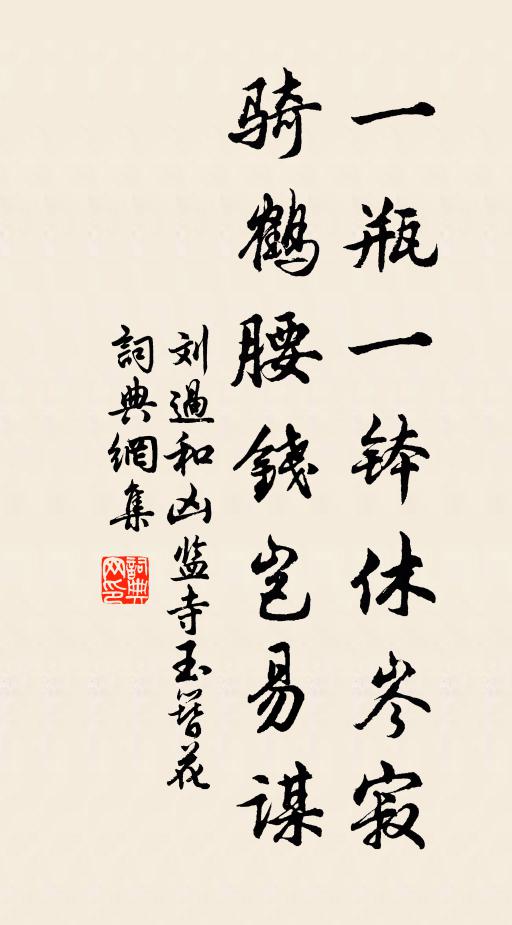 一瓶一钵休岑寂
骑鹤腰錢岂易谋
刘過和凶监寺玉簪花
詞典網集
詞典网印